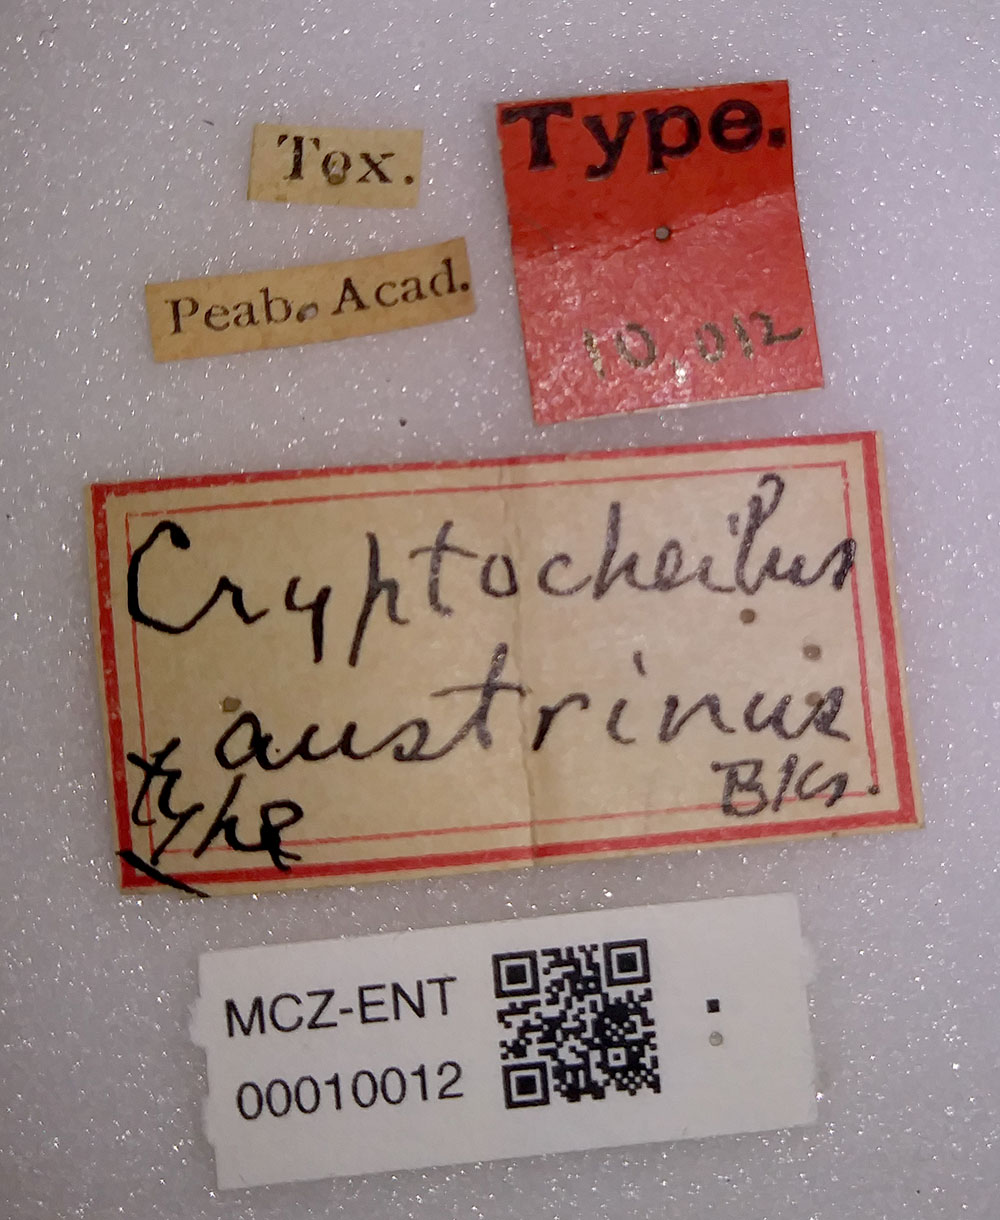 Tex.
Type.
10,012
Peab. Acad.
Cryptocheilus
austrinus
type
Bks.
MCZ-ENT
00010012